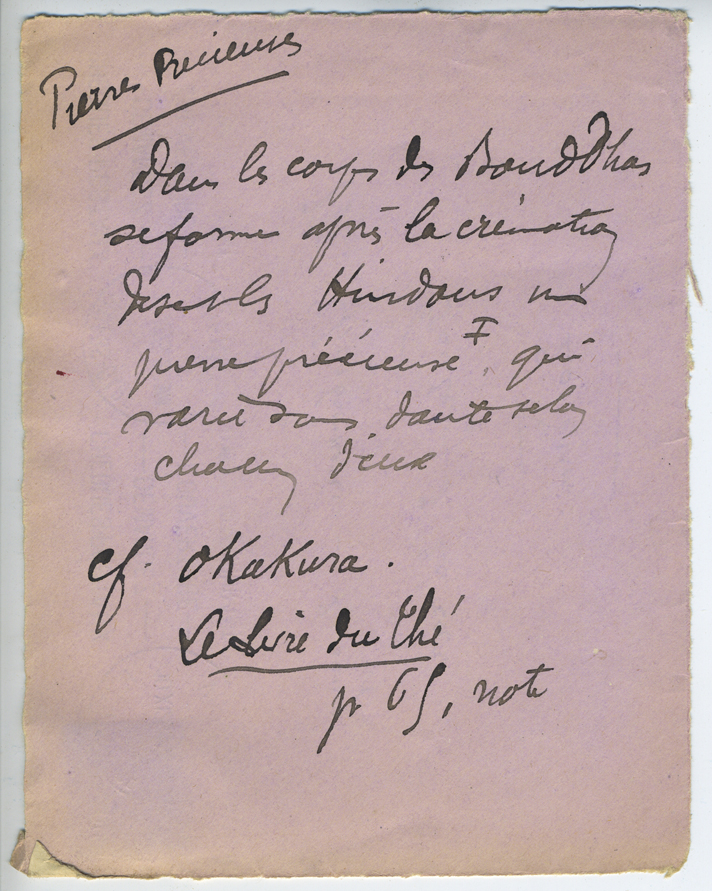 Pierres Précieuses
Dans les corps des BouddDhas
se forme après la crémation
disent les Hindous une
pierre précieuse, qui
varie sans doute selon
chacun d'eux
cf. Okakura.
Le Livre du Thé
p 65, note